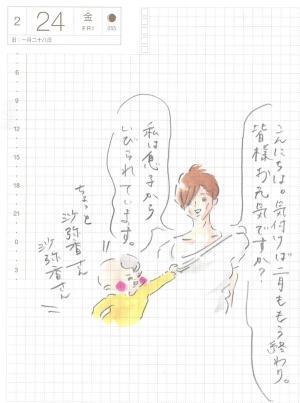 2
24
金
FRI
055
旧:一月二十八日
6
9
12
3
6
9
0
3
こんにちは。気付けば二月ももう終わり。
皆様お元気ですか?
私は息子から
いびられています。
ちょっと
沙弥香さん
沙弥香さん